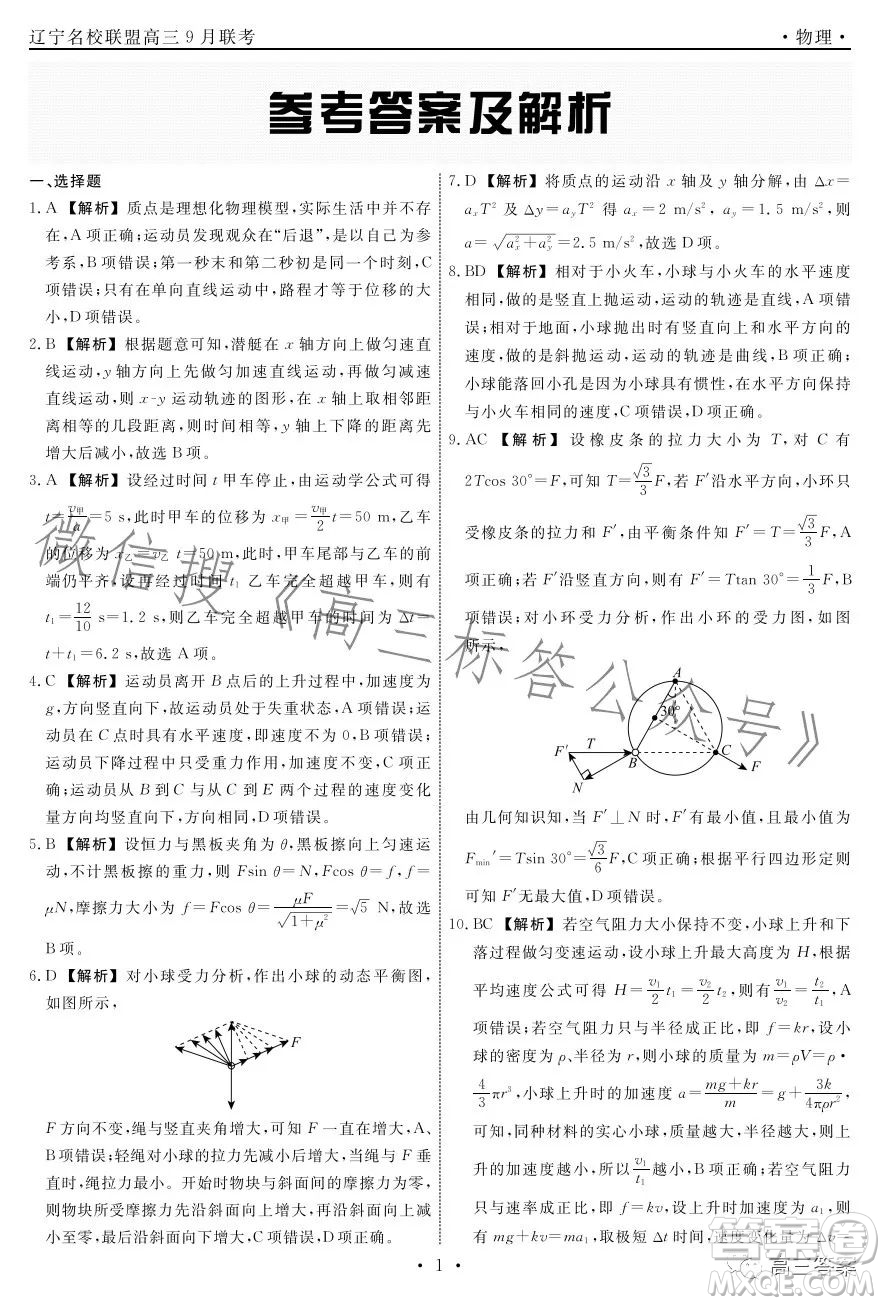 辽宁名校联盟高三9月联考 ·物理·
参考答案及解析
一、选择题
1. A 【解析】质点是理想化物理模型,实际生活中并不存
在,A项正确;运动员发现观众在“后退”,是以自己为参
考系,B项错误;第一秒末和第二秒初是同一个时刻,C
项错误;只有在单向直线运动中,路程才等于位移的大
小,D项错误。
2. B 【解析】根据题意可知,潜艇在 x 轴方向上做匀速直
线运动,y轴方向上先做匀加速直线运动,再做匀减速
直线运动,则 x-y 运动轨迹的图形,在 x 轴上取相邻距
离相等的几段距离,则相等时间内,y轴上下降的距离先
增大后减小,故选B项。
3. A 【解析】设经过时间 t 甲车停止,由运动学公式可得
t=v甲/a=5 s,此时甲车的位移为 x甲=v甲/2 t=50 m,乙车
的位移为 x乙=v乙 t=50 m,此时,甲车尾部与乙车的前
端仍平齐,设再经过时间 t₁ 乙车完全超越甲车,则有
t₁=12/10 s=1.2 s,则乙车完全超越甲车的时间为 Δt=
t+t₁=6.2 s,故选A项。
4. C 【解析】运动员离开 B 点后的上升过程中,加速度为
g,方向竖直向下,故运动员处于失重状态,A项错误;运
动员在 C 点时具有水平速度,即速度不为0,B项错误;
运动员下降过程中只受重力作用,加速度不变,C项正
确;运动员从 B 到 C 与从 C 到 E 两个过程的速度变化
量方向均竖直向下,方向相同,D项错误。
5. B 【解析】设恒力与黑板夹角为 θ,黑板擦向上匀速运
动,不计黑板擦的重力,则 Fsin θ=N,Fcos θ=f,f=
μN,摩擦力大小为 f=Fcos θ=μF/√(1+μ²)=√5 N,故选
B项。
6. D 【解析】对小球受力分析,作出小球的动态平衡图,
如图所示,
F
F 方向不变,绳与竖直夹角增大,可知 F 一直在增大,A、
B项错误;轻绳对小球的拉力先减小后增大,当绳与 F 垂
直时,绳拉力最小。开始时物块与斜面间的摩擦力为零,
则物块所受摩擦力先沿斜面向上增大,再沿斜面向上减
小至零,最后沿斜面向下增大,D项正确。
7. D 【解析】将质点的运动沿 x 轴及 y 轴分解,由 Δx=
aₓT² 及 Δy=a_yT² 得 aₓ=2 m/s²,a_y=1.5 m/s²,则
a=√(aₓ²+a_y²)=2.5 m/s²,故选D项。
8. BD 【解析】相对于小火车,小球与小火车的水平速度
相同,做的是竖直上抛运动,运动的轨迹是直线,A项错
误;相对于地面,小球抛出时有竖直向上和水平方向的
速度,做的是斜抛运动,运动的轨迹是曲线,B项正确;
小球能落回小孔是因为小球具有惯性,在水平方向保持
与小火车相同的速度,C项错误,D项正确。
9. AC 【解析】设橡皮条的拉力大小为 T,对 C 有
2Tcos 30°=F,可知 T=√3/3 F,若 F′沿水平方向,小环只
受橡皮条的拉力和 F′,由平衡条件知 F′=T=√3/3 F,A
项正确;若 F′沿竖直方向,则有 F′=Ttan 30°=1/3 F,B
项错误;对小环受力分析,作出小环的受力图,如图
所示,
A
30°
F′ T B C F
N
由几何知识知,当 F′⊥N 时,F′有最小值,且最小值为
Fmin′=Tsin 30°=√3/6 F,C项正确;根据平行四边形定则
可知 F′无最大值,D项错误。
10. BC 【解析】若空气阻力大小保持不变,小球上升和下
落过程做匀变速运动,设小球上升最大高度为 H,根据
平均速度公式可得 H=v₁/2 t₁=v₂/2 t₂,则有 v₁/v₂=t₂/t₁,A
项错误;若空气阻力只与半径成正比,即 f=kr,设小
球的密度为 ρ、半径为 r,则小球的质量为 m=ρV=ρ·
4/3 πr³,小球上升时的加速度 a=(mg+kr)/m=g+3k/(4πρr²),
可知,同种材料的实心小球,质量越大,半径越大,则上
升的加速度越小,所以 v₁/t₁ 越小,B项正确;若空气阻力
只与速率成正比,即 f=kv,设上升时加速度为 a₁,则
有 mg+kv=ma₁,取极短 Δt 时间,速度变化量为 Δv=
· 1 ·
微信搜《高三标答公众号》
答案圈
高三答案
MXQE.COM